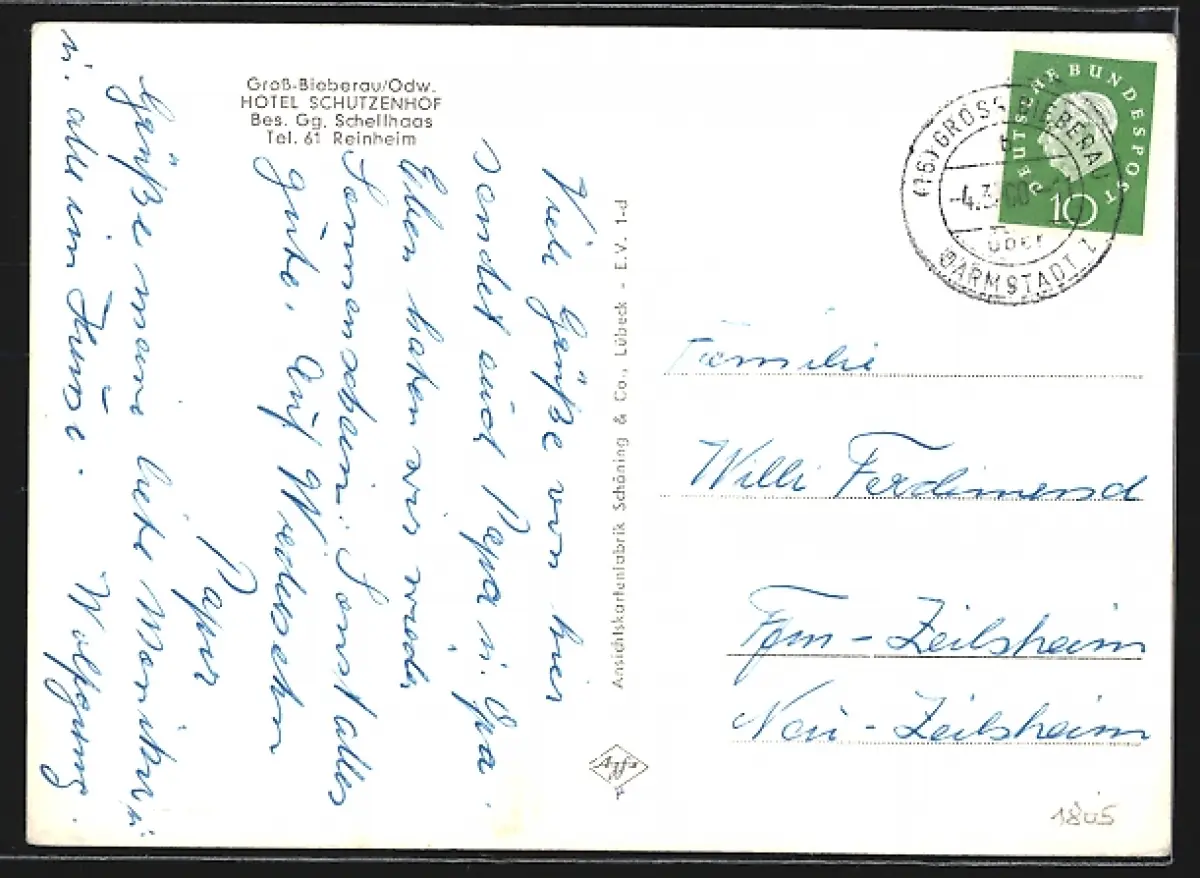 Groß-Bieberau/Odw.
HOTEL SCHÜTZENHOF
Bes. Gg. Schellhaas
Tel. 61 Reinheim
Viele Grüße von hier
sendet euch Papa u. Opa.
Eben haben wir wieder
Sonnenschein. Sonst alles
gute. Auf Wiedersehn
Papa
Grüße man
u. alle im Hause.
Wolfgang.
Ansichtskartenfabrik Schöning & Co., Lübeck - E.V. 1-d
Agfa
DEUTSCHE BUNDESPOST
10
(16) GROSS BIEBERAU
b
-4.3.60
über
DARMSTADT 2
Familie
Willi Ferdinand
Ffm - Zeilsheim
Neu - Zeilsheim
1805